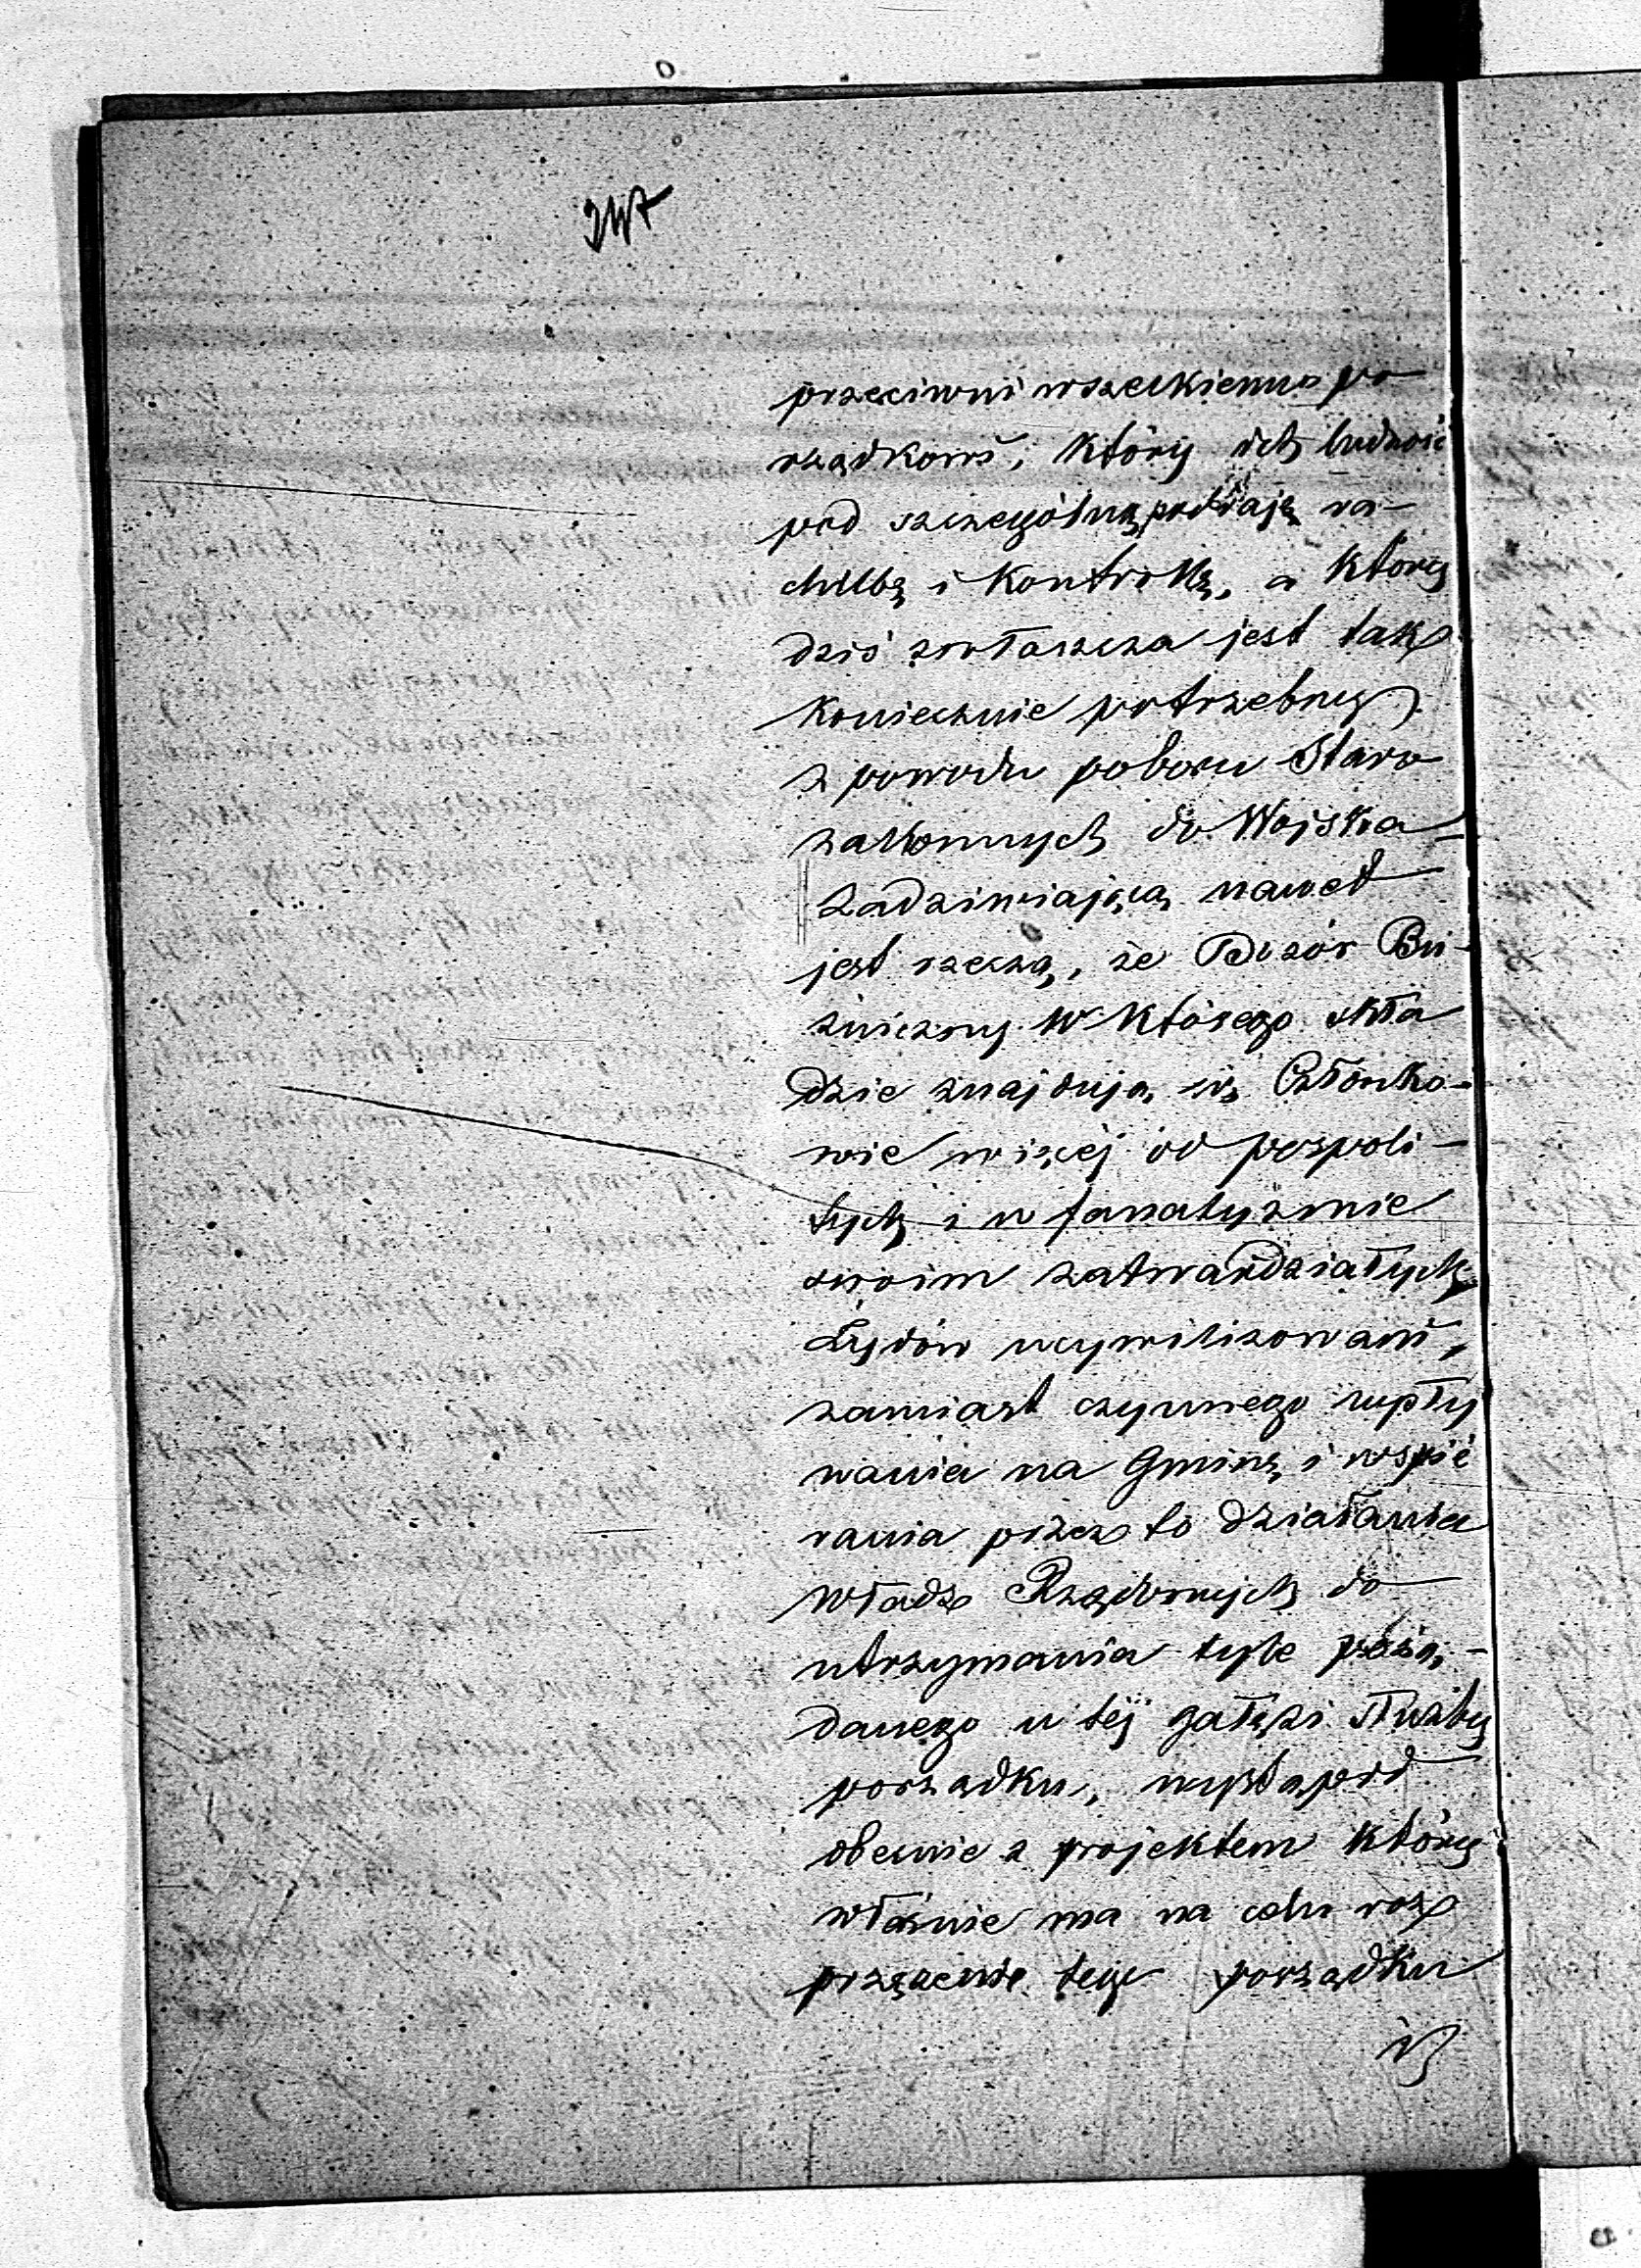 przeciwni wszelkiemu po
rządkowi, który ich ludność
pod szczególną poddaje ra-
chubę i Kontrollę, a który
dziś zwłaszcza jest tak
koniecznie potrzebny
z powodu poboru Staro
zakonnych do Wojska
Zadziwiającą nawet
jest rzeczą, że Dozór Bu-
żniczny w którego skła
dzie znajdują się Członko-
wie więcej od pospoli-
tych i w fanatyzmie
swoim zatwardziałych
Żydów ucywilizowani,
zamiast czynnego wpły
wania na Gminę i wspie
rania przez to działania
Władz Rządowych do
utrzymania tyle pożą-
danego w tej gałęzi służby
porządku, wystąpił
obecnie z projektem który
właśnie ma na celu roz
przężenie tego porządku
i